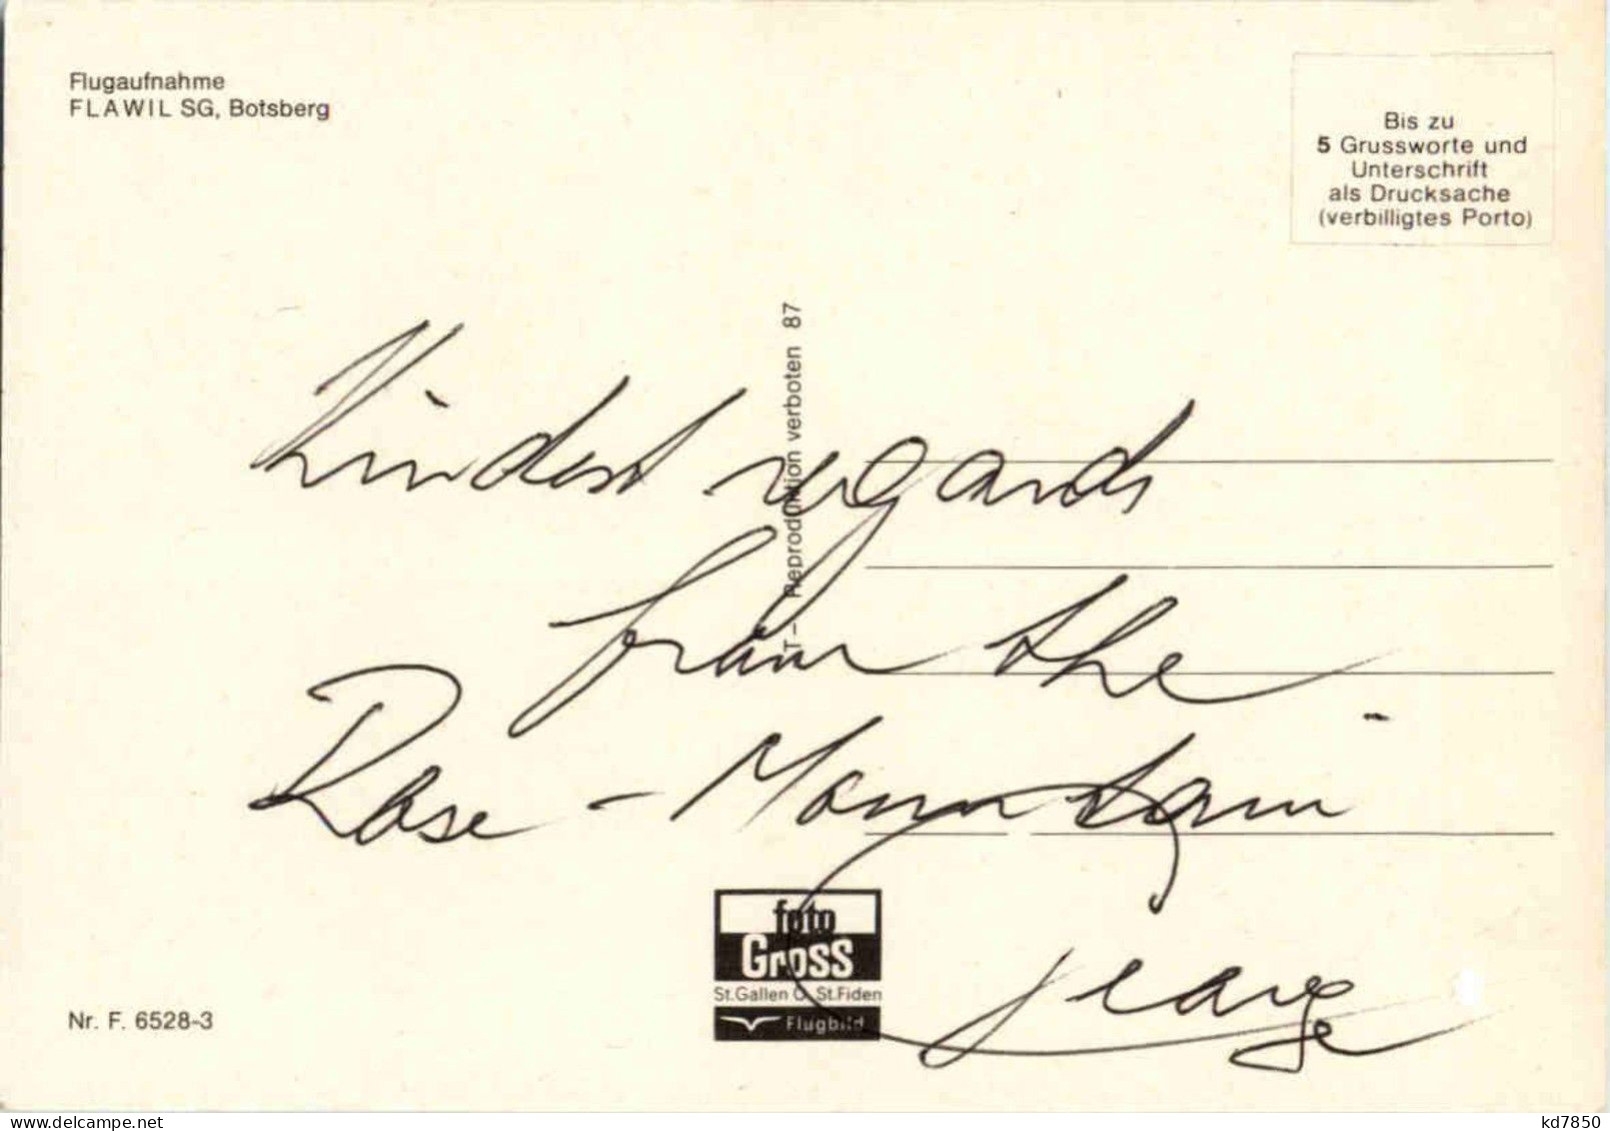 Flugaufnahme
FLAWIL SG, Botsberg
Bis zu
5 Grussworte und
Unterschrift
als Drucksache
(verbilligtes Porto)
T- Reproduktion verboten 87
Kindest regards
from the
Rose-Mountain
George
foto
Gross
St.Gallen O. St.Fiden
Flugbild
Nr. F. 6528-3
www.delcampe.net
kd7850